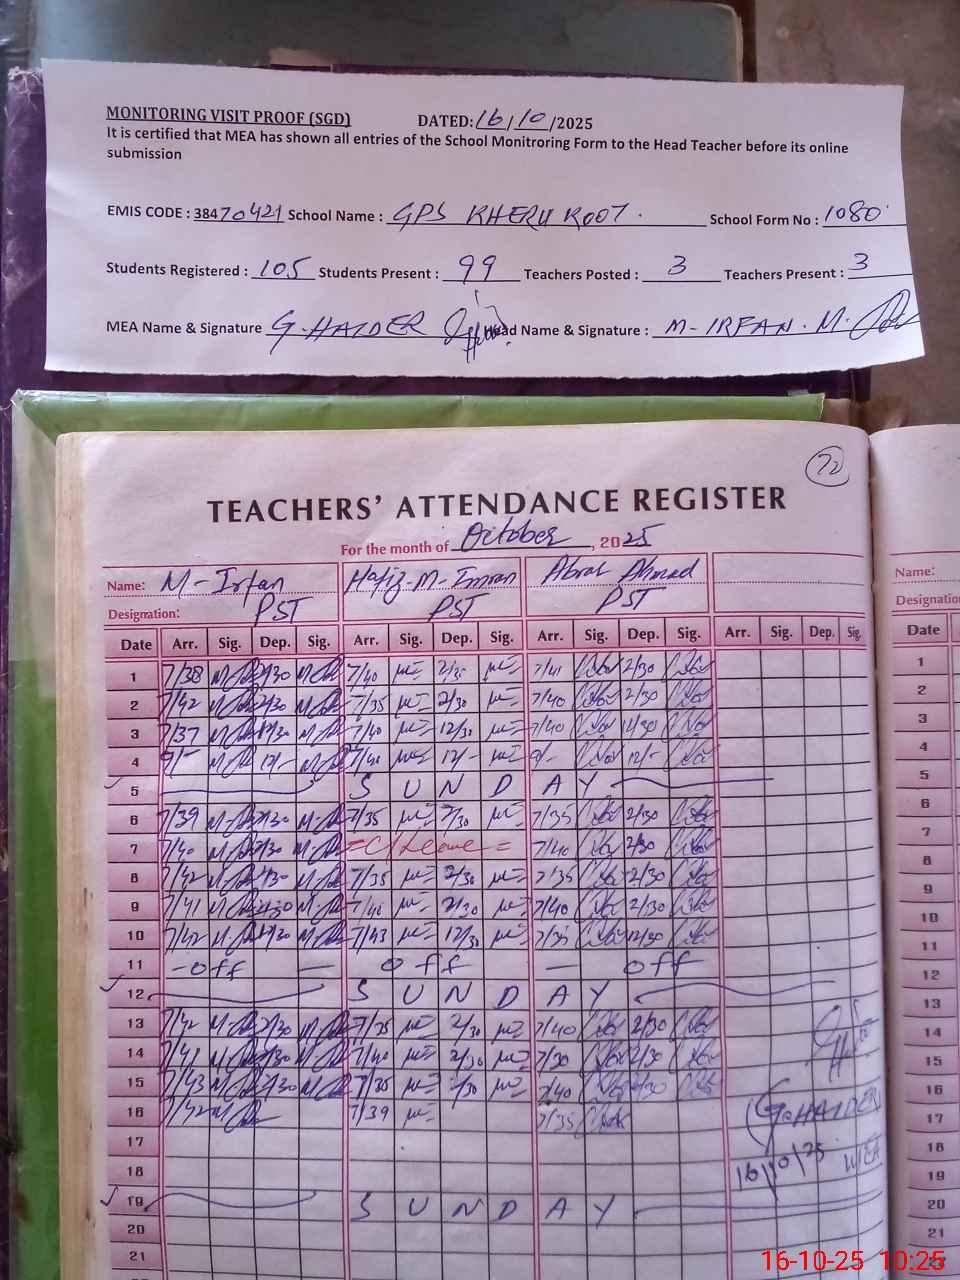 MONITORING VISIT PROOF (SGD) DATED: 16/10/2025
It is certified that MEA has shown all entries of the School Monitroring Form to the Head Teacher before its online
submission
EMIS CODE : 38470421 School Name : GPS KHERU KOOT. School Form No : 1080
Students Registered : 105 Students Present : 99 Teachers Posted : 3 Teachers Present : 3
MEA Name & Signature G.HAIDER Head Name & Signature : M-IRFAN.
72
TEACHERS' ATTENDANCE REGISTER
For the month of October, 2025
Name: M-Irfan Hafiz-M-Imran Abrar Ahmad Name:
Designation: PST PST PST Designation
Date Arr. Sig. Dep. Sig. Arr. Sig. Dep. Sig. Arr. Sig. Dep. Sig. Arr. Sig. Dep. Sig. Date
1 7/38 2/30 7/40 2/30 7/41 2/30 1
2 7/42 2/30 7/35 2/30 7/40 2/30 2
3 7/37 12/30 7/40 12/30 7/40 12/30 3
4 9/- 12/- 12/- 9/- 12/- 4
5 S U N D A Y 5
6 7/39 2/30 7/35 2/30 7/35 2/30 6
7 7/40 2/30 =C/Leave= 7/40 2/30 7
8 7/42 2/30 7/35 2/30 7/35 2/30 8
9 7/41 2/30 7/40 2/30 7/40 2/30 9
10 7/42 12/30 7/43 12/30 7/35 12/30 10
11 -off- off - off 11
12 S U N D A Y 12
13 7/42 2/30 7/35 2/30 7/40 2/30 13
14 7/41 2/30 7/40 2/30 7/30 2/30 14
15 7/43 2/30 7/35 2/30 7/40 2/30 15
16 7/42 7/39 7/35 16
(G.HAIDER)
17 17
16/10/25 MEA
18 18
19 S U N D A Y 19
20 20
21 21
16-10-25 10:25